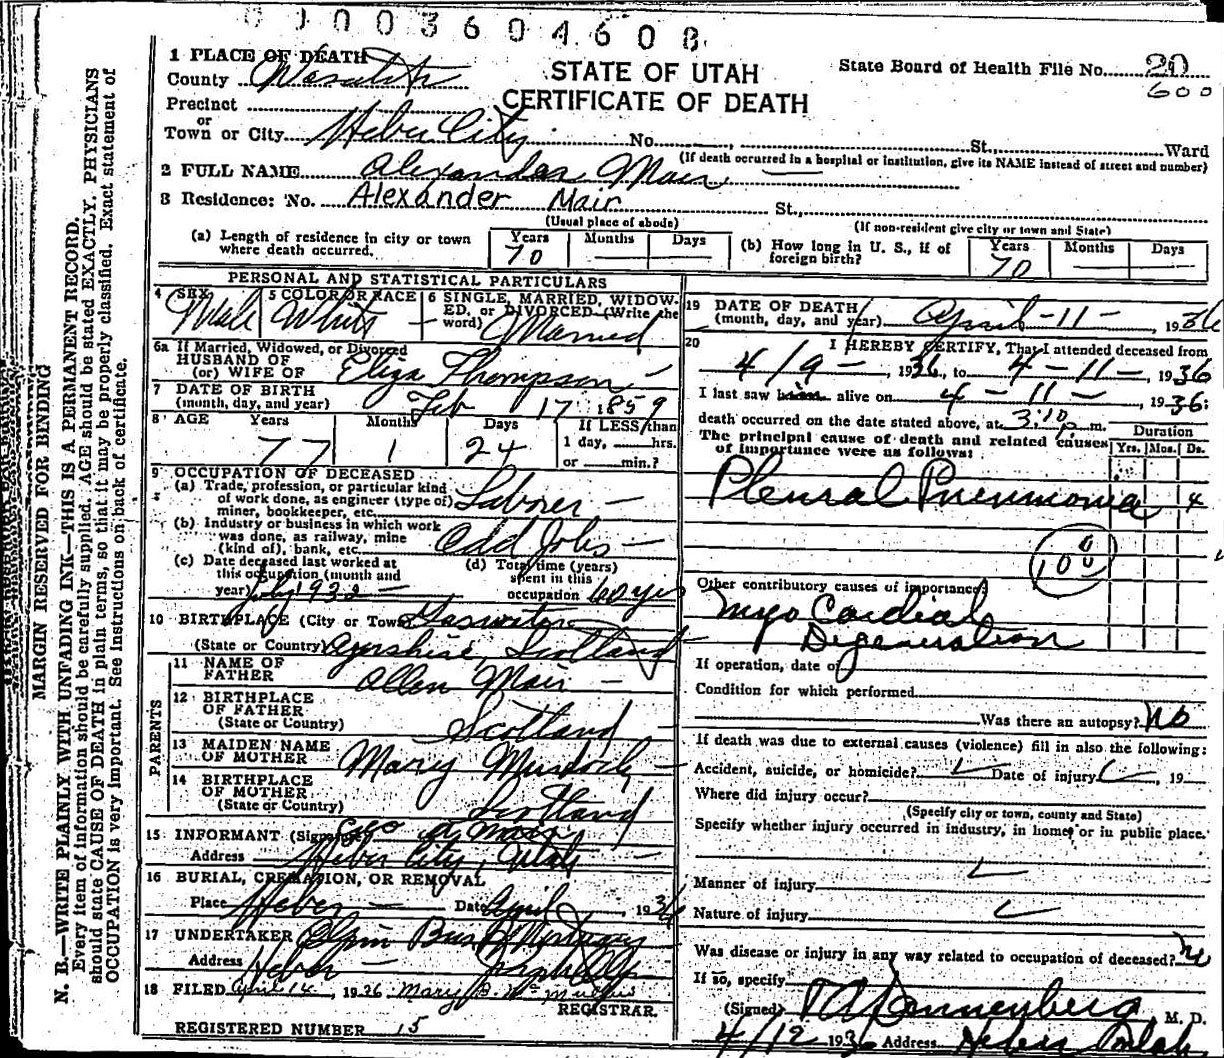 0 0 0 0 3 6 0 4 6 0 8
MARGIN RESERVED FOR BINDING
N. B.—WRITE PLAINLY WITH UNFADING INK—THIS IS A PERMANENT RECORD.
Every item of information should be carefully supplied. AGE should be stated EXACTLY. PHYSICIANS
should state CAUSE OF DEATH in plain terms, so that it may be properly classified. Exact statement of
OCCUPATION is very important. See instructions on back of certificate.
STATE OF UTAH
CERTIFICATE OF DEATH
State Board of Health File No. 20
600
1 PLACE OF DEATH
County Wasatch
Precinct
or
Town or City Heber City No. , St., Ward
(If death occurred in a hospital or institution, give its NAME instead of street and number)
2 FULL NAME Alexander Mair
3 Residence: No. Alexander Mair St.,
(Usual place of abode) (If non-resident give city or town and State)
(a) Length of residence in city or town where death occurred. Years 70 Months — Days —
(b) How long in U. S., if of foreign birth? Years 70 Months — Days —
PERSONAL AND STATISTICAL PARTICULARS
4 SEX Male
5 COLOR OR RACE White
6 SINGLE, MARRIED, WIDOWED, or DIVORCED (Write the word) Married
6a If Married, Widowed, or Divorced
HUSBAND OF
(or) WIFE OF Eliza Thompson
7 DATE OF BIRTH
(month, day, and year) Feb 17 1859
8 AGE Years 77 Months 1 Days 24 If LESS than 1 day, hrs. or min.?
9 OCCUPATION OF DECEASED
(a) Trade, profession, or particular kind
of work done, as engineer (type of)
miner, bookkeeper, etc. Laborer
(b) Industry or business in which work
was done, as railway, mine
(kind of), bank, etc. Odd Jobs
(c) Date deceased last worked at
this occupation (month and
year) July 1932
(d) Total time (years)
spent in this
occupation 60 yrs
10 BIRTHPLACE (City or Town)
(State or Country) Ayrshire, Scotland
PARENTS
11 NAME OF
FATHER Allen Mair
12 BIRTHPLACE
OF FATHER
(State or Country) Scotland
13 MAIDEN NAME
OF MOTHER Mary Murdoch
14 BIRTHPLACE
OF MOTHER
(State or Country) Scotland
15 INFORMANT (Signature) Mair
Address Heber City, Utah
16 BURIAL, CREMATION, OR REMOVAL
Place Heber Date April 1936
17 UNDERTAKER
Address Heber
18 FILED April 14, 1936 Mary
REGISTRAR.
REGISTERED NUMBER 15
19 DATE OF DEATH
(month, day, and year) April—11—, 1936
20 I HEREBY CERTIFY, That I attended deceased from
4/9—, 1936, to 4—11—, 1936
I last saw him alive on 4—11—, 1936;
death occurred on the date stated above, at 3:10 p. m.
The principal cause of death and related causes
of importance were as follows:
Duration
Yrs. Mos. Ds.
Pleural Pneumonia 4
100
Other contributory causes of importance:
Myo Cardial
Degeneration
If operation, date of
Condition for which performed
Was there an autopsy? No
If death was due to external causes (violence) fill in also the following:
Accident, suicide, or homicide? Date of injury , 19
Where did injury occur?
(Specify city or town, county and State)
Specify whether injury occurred in industry, in home, or in public place.
Manner of injury
Nature of injury
Was disease or injury in any way related to occupation of deceased? no
If so, specify
(Signed) Dannenberg M. D.
4/12 1936 Address Heber Utah